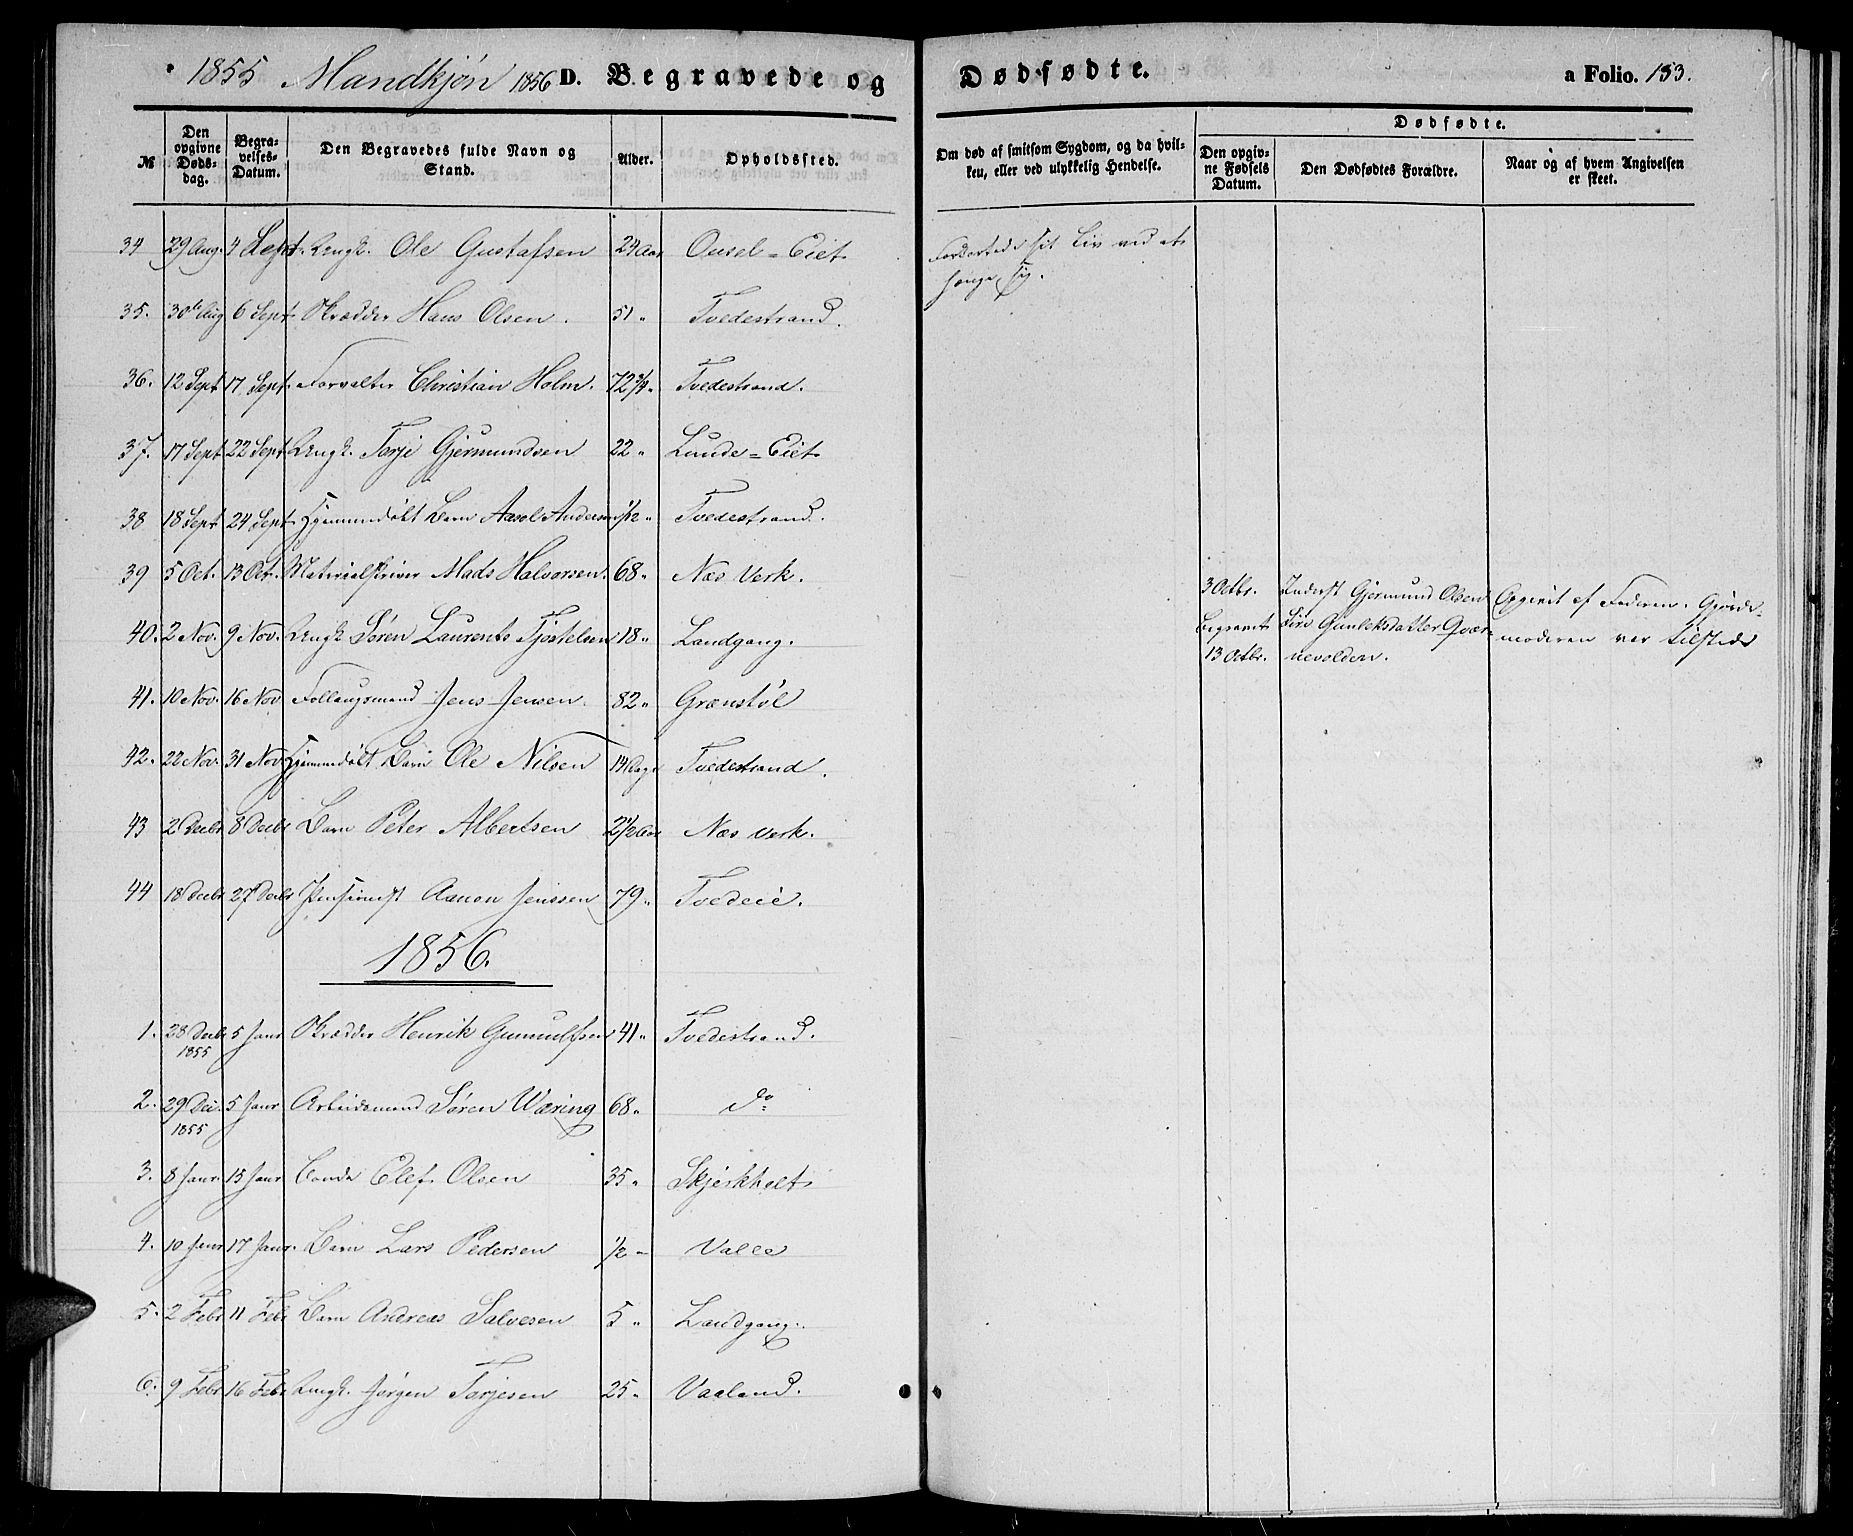 1855 Mandkjøn 1856 D. Begravede og Dødfødte. a Folio. 153.
№ Den opgivne Døds-dag. Begra-velses-Datum. Den Begravedes fulde Navn og Stand. Alder. Opholdssted. Om død af smitsom Sygdom, og da hvil-ken, eller ved ulykkelig Hendelse. Dødfødte. Den opgiv-ne Fødsels Datum. Den Dødfødtes Forældre. Naar og af hvem Angivelsen er skeet.
34 29 Aug. 4 Sept. Ungk. Ole Gustafsen 24 Aar Ousel-Eiet Forkortede sit Liv ved at
hænge sig.
35. 30te Aug 6 Sept. Skrædder Hans Olsen. 51 " Tvedestrand.
36. 12 Sept 17 Sept. Forvalter Christian Holm. 72 3/4 " Tvedestrand.
37. 17 Sept 22 Sept Ungk. Torje Gjermundsen 22 " Lunde-Eiet
38 18 Sept 24 Sept Hjemmedøbt Barn Axel Andersen 1/12 " Tvedestrand.
39 5 Oct. 13 Oct. Materialskriver Mads Halvorsen. 68 " Næs Verk.
3 Octbr. Inderst Gjermund Olsen Opgivet af Faderen. Gjorde-
40. 2 Nov. 9 Nov. Ungk Søren Laurents Tjøstelsen 18 " Landgang.
begravet Siri Gunleksdatter Qvær- moderen var tilstede
13 Octbr. nevolden.
41. 10 Nov. 16 Nov Follaugsmand Jens Jensen. 82 " Grønstøl
42. 22 Nov. 31 Nov Hjemmedøbt Barn Ole Nilsen 14 Dage Tvedestrand.
43 2 Decbr 8 Decbr Barn Peter Albertsen 2 1/2 Aar Næs Verk.
44 18 Decbr 27 Decbr Pensionist Aanon Jenssen 79 " Tvedeie.
1856.
1. 28 Decbr 1855 5 Janr Skrædder Henrik Gunnulfsen 41 " Tvedestrand.
2. 29 Dec. 1855 5 Janr Arbeidsmand Søren Wæring 68 " do
3. 8 Janr. 15 Janr Bonde Elef Olsen 35 " Skjerkholt
4. 10 Janr 17 Janr. Barn Lars Pedersen 1/2 " Valle
5. 2 Febr 11 Febr Barn Andreas Salvesen 5 " Landgang.
6. 9 Febr 16 Febr Ungk. Jørgen Torjesen 25 " Vaaland.